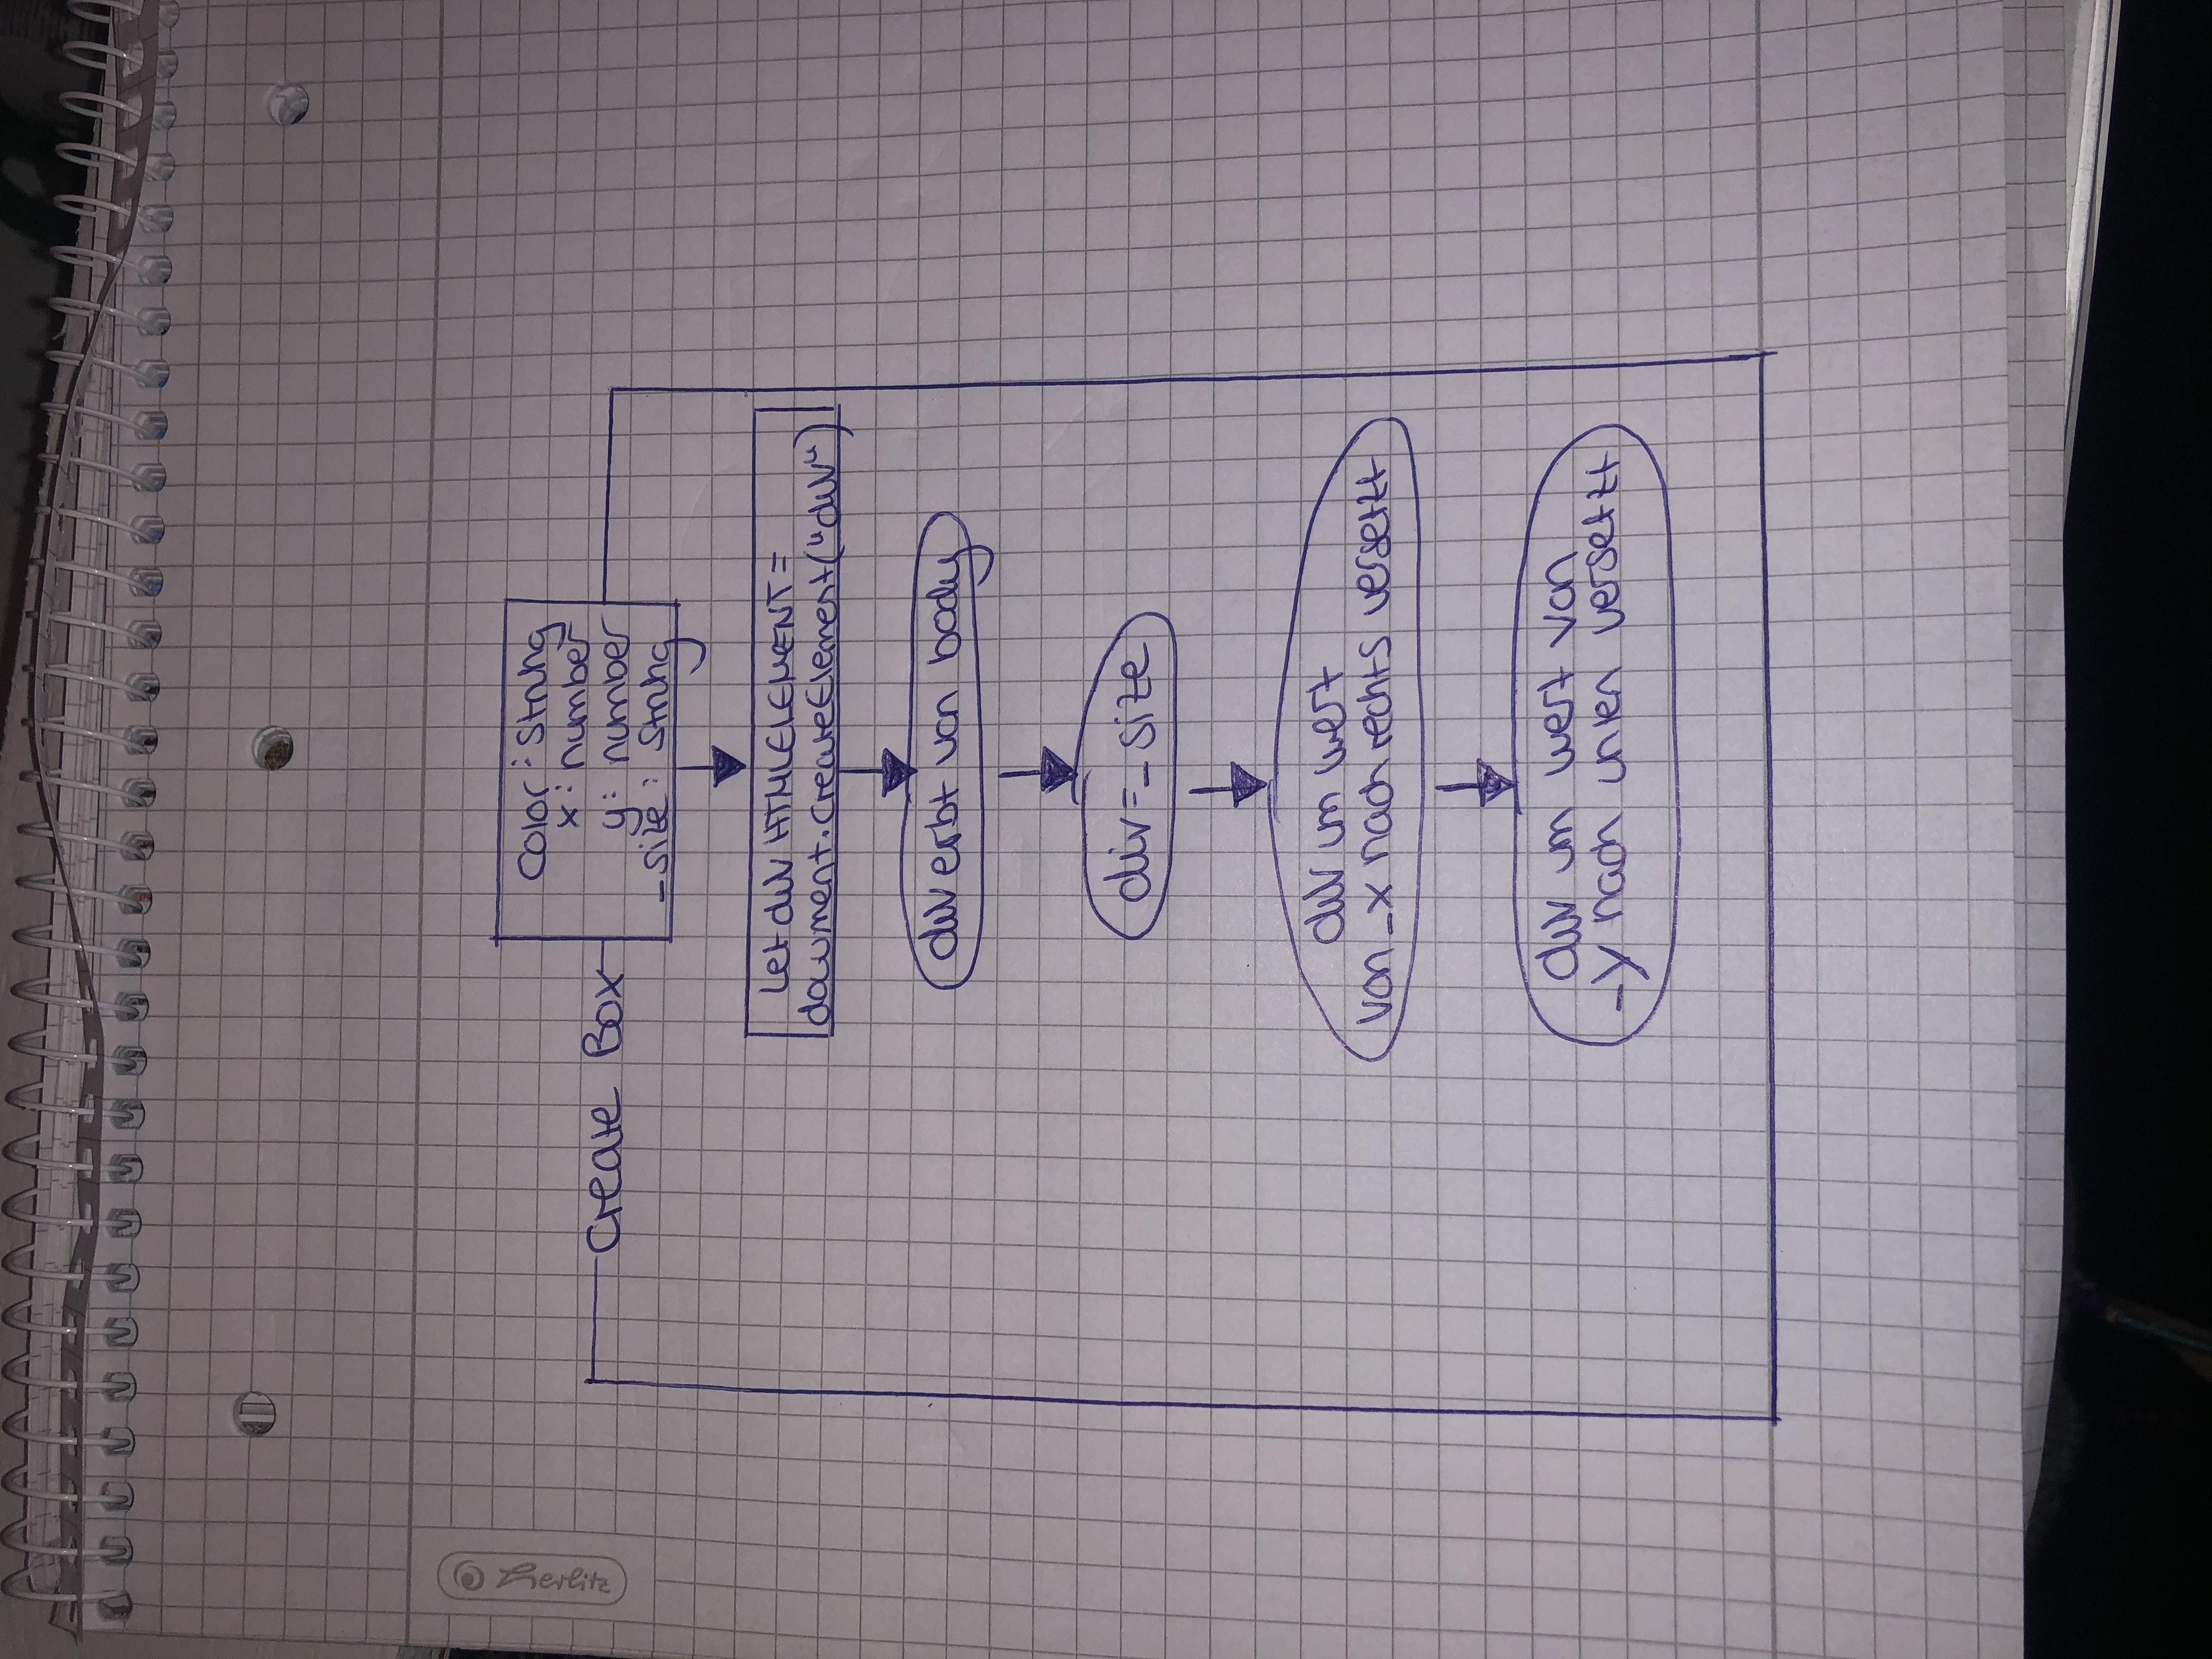 Color: String
x: number
Create Box
y: number
_size: String
Let div HTMLELEMENT =
document.createElement("div")
div erbt von body
div=_size
div um wert
von _x nach rechts versetzt
div um wert von
_y nach unten versetzt
Herlitz